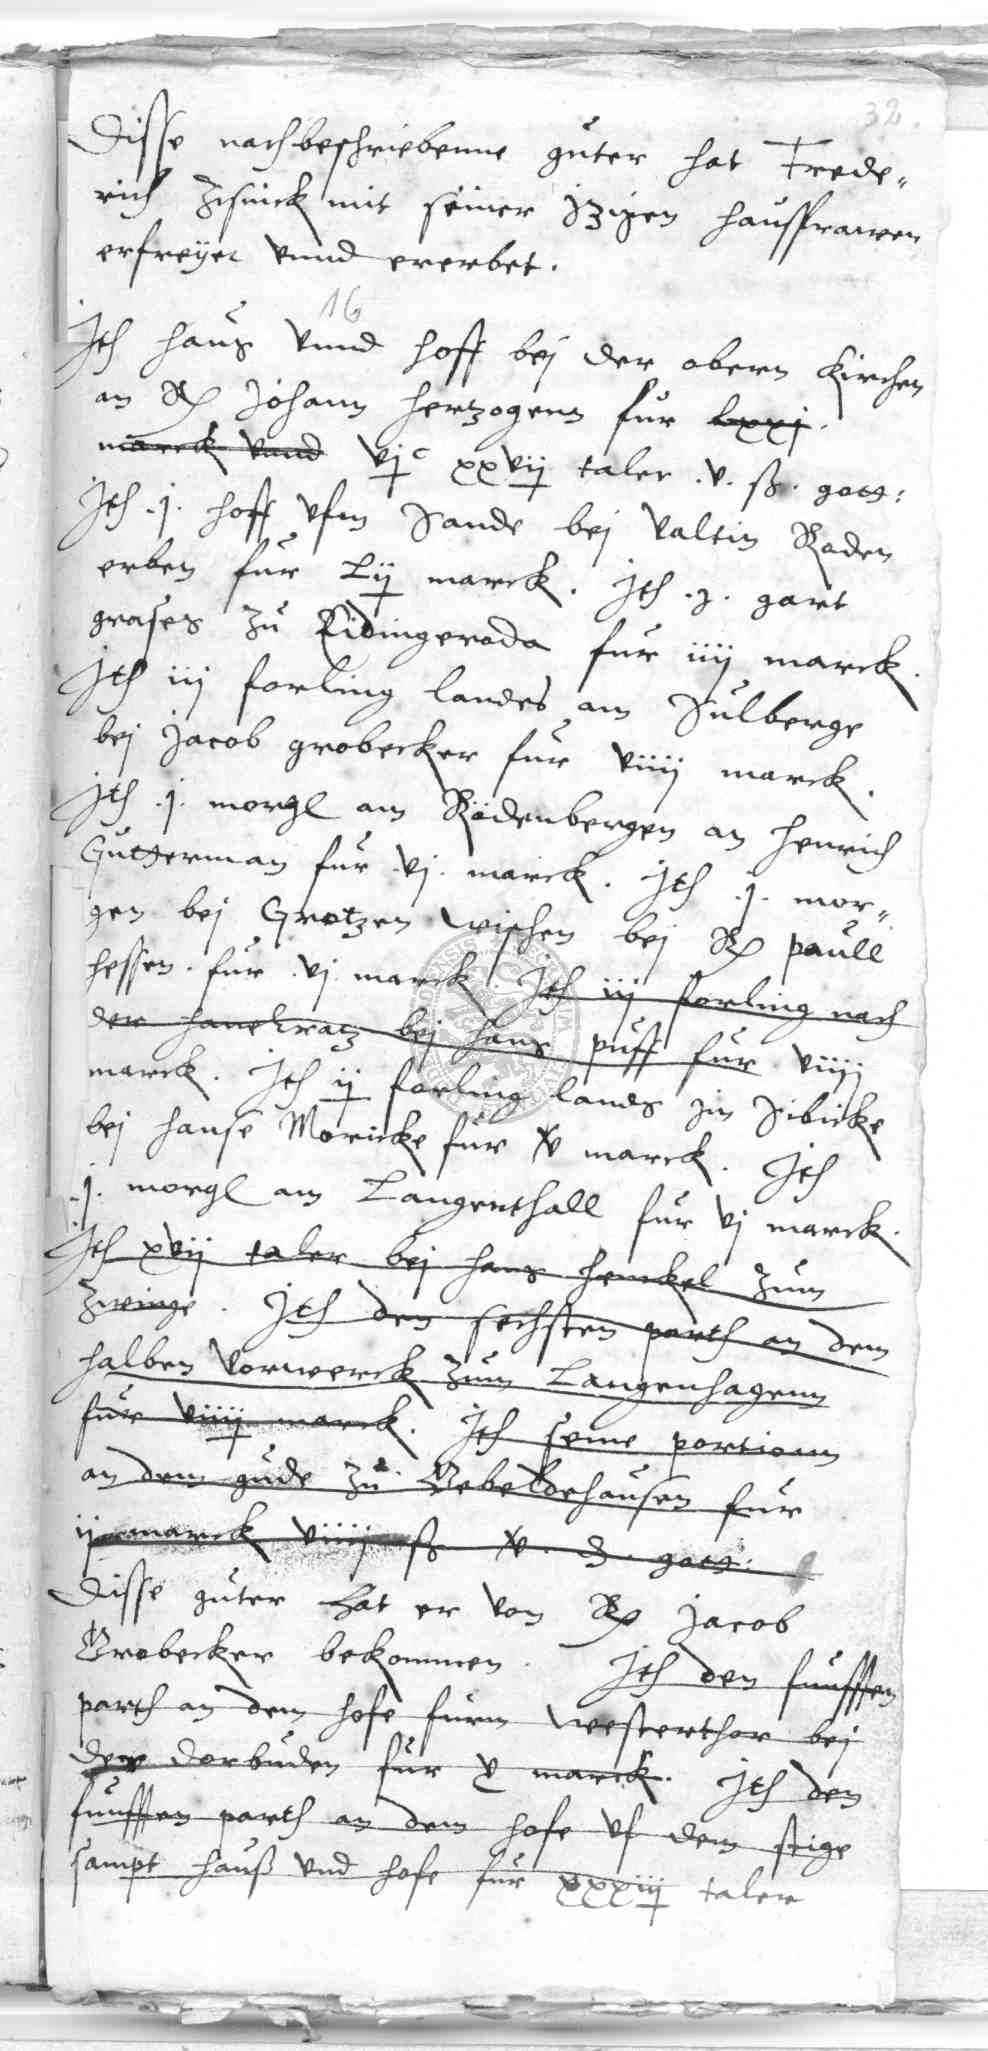 32.
Disse nachbeschriebenne guter hat Frede„
rich Zisnick mit seiner Jtzigen hausfrawen
erfreyet vnnd ererbet.
16
Jth haus vnnd hoff bej der obern Kirchen
an Johann hertzogenn fur lxxj.
marck vnnd vjc xxvij taler .v. ß. gotg:
Jth .j. hoff vfm Sande bej Valtin Roden
erben fur Lij marck. Jth .j. gart
grases zu Lidingeroda fur iiij marck.
Jth iij forling landes am Sulberge
bej Jacob grobecker fur viiij marck.
Jth .j. morgl am Rödenbergen an Henrich
Gutterman fur .vj. marck. Jth .j. mor„
gen bej Gretzen wischen bej paull
hessen. fur .vj. marck. Jth iij forling nach
der hanekratz bej hans puff fur viiij
marck. Jth ij forling lands jm Sibicke
bej hanse Moricke fur x marck. Jth
.j. morgl am Langenthall fur vj marck.
Jth xvij taler bej hans henckel zum
Zwinge. Jth den sechsten parth an dem
halben vorwerck zum Langenhagenn
fur viiij marck. Jth seine portionn
an dem gude zu Gebeldehausen fur
ij marck viiij ß x. d. gotg:
Disse guter hat er von Jacob
Grobecker bekommen. Jth den funfften
parth an dem hofe furm westerthor bej
der dorbuden fur x marck. Jth den
funfften parth an dem hofe vf dem stige
sampt hauß vnd hofe fur xxxiij taler